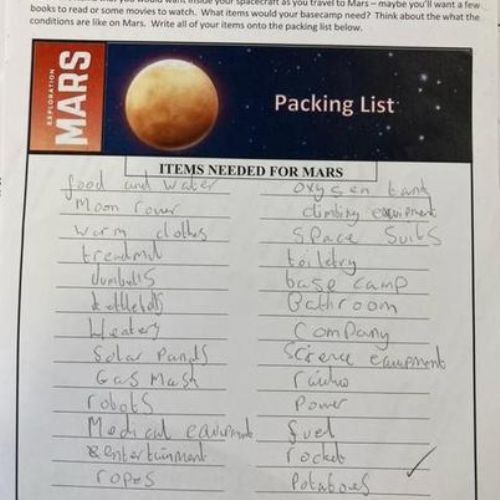 books to read or some movies to watch. What items would your basecamp need? Think about the what the
conditions are like on Mars. Write all of your items onto the packing list below.
EXPLORATION
MARS
Packing List
ITEMS NEEDED FOR MARS
food and water
Moon rover
warm clothes
treadmil
dumbells
Heaters
Solar Panels
Gas Mask
robots
Medical equipment
& entertainment
ropes
oxygen tank
climbing equipment
Space Suits
toiletry
base camp
Bathroom
Company
Science equipment
radio
Power
fuel
rocket
Potatoes